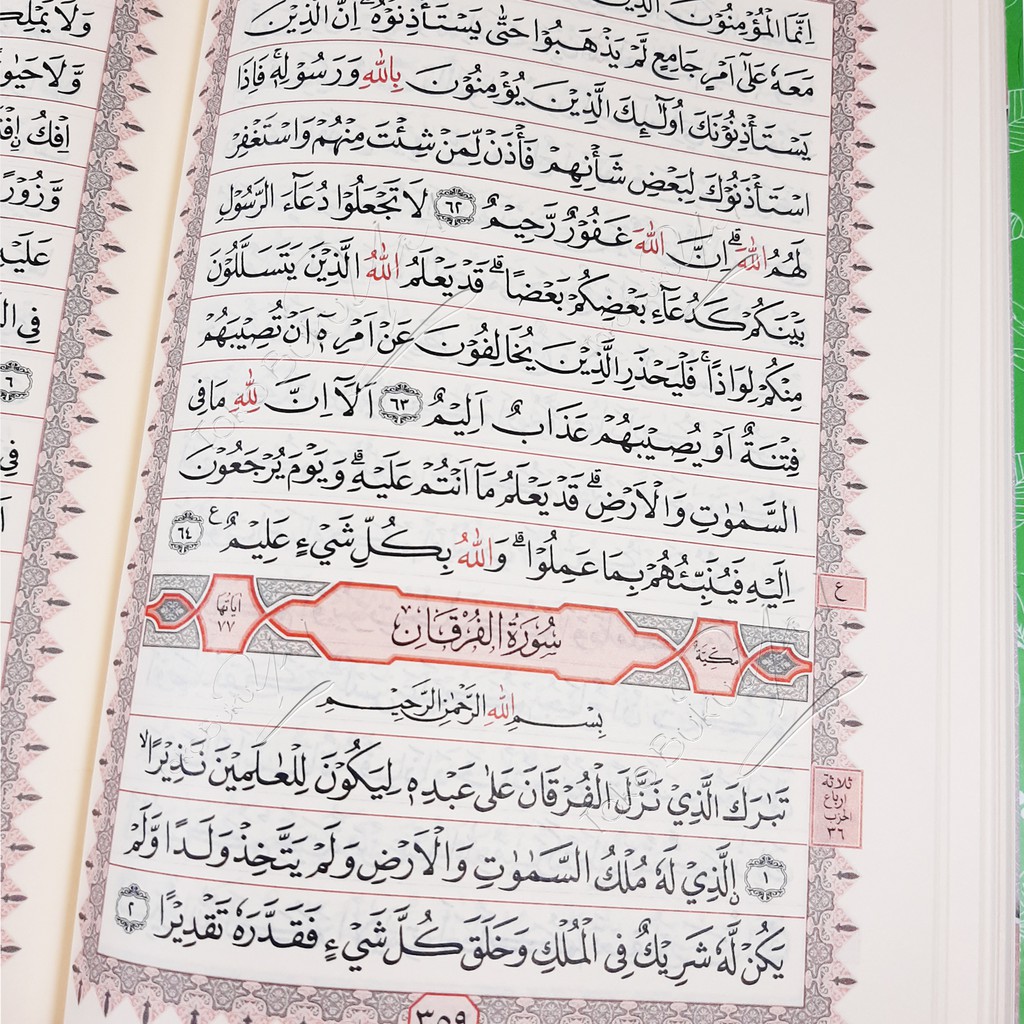 اِنَّمَا الْمُؤْمِنُوْنَ الَّذِيْنَ
مَعَهٗ عَلٰٓى اَمْرٍ جَامِعٍ لَّمْ يَذْهَبُوْا حَتّٰى يَسْتَأْذِنُوْهُ ۗاِنَّ الَّذِيْنَ
يَسْتَأْذِنُوْنَكَ اُولٰۤىِٕكَ الَّذِيْنَ يُؤْمِنُوْنَ بِاللّٰهِ وَرَسُوْلِهٖۚ فَاِذَا
اسْتَأْذَنُوْكَ لِبَعْضِ شَأْنِهِمْ فَأْذَنْ لِّمَنْ شِئْتَ مِنْهُمْ وَاسْتَغْفِرْ
لَهُمُ اللّٰهَ ۗاِنَّ اللّٰهَ غَفُوْرٌ رَّحِيْمٌ ٦٢ لَا تَجْعَلُوْا دُعَاۤءَ الرَّسُوْلِ
بَيْنَكُمْ كَدُعَاۤءِ بَعْضِكُمْ بَعْضًاۗ قَدْ يَعْلَمُ اللّٰهُ الَّذِيْنَ يَتَسَلَّلُوْنَ
مِنْكُمْ لِوَاذًاۚ فَلْيَحْذَرِ الَّذِيْنَ يُخَالِفُوْنَ عَنْ اَمْرِهٖٓ اَنْ تُصِيْبَهُمْ
فِتْنَةٌ اَوْ يُصِيْبَهُمْ عَذَابٌ اَلِيْمٌ ٦٣ اَلَآ اِنَّ لِلّٰهِ مَا فِى
السَّمٰوٰتِ وَالْاَرْضِۗ قَدْ يَعْلَمُ مَآ اَنْتُمْ عَلَيْهِۗ وَيَوْمَ يُرْجَعُوْنَ
اِلَيْهِ فَيُنَبِّئُهُمْ بِمَا عَمِلُوْاۗ وَاللّٰهُ بِكُلِّ شَيْءٍ عَلِيْمٌ ࣖ ٦٤
ع
مَكِّيَّة سُوْرَةُ الْفُرْقَانِ اٰيَاتُهَا ٧٧
بِسْمِ اللّٰهِ الرَّحْمٰنِ الرَّحِيْمِ
تَبٰرَكَ الَّذِيْ نَزَّلَ الْفُرْقَانَ عَلٰى عَبْدِهٖ لِيَكُوْنَ لِلْعٰلَمِيْنَ نَذِيْرًا ۙ
ثلاثة
ارباع
الحزب
٣٦
١ ۨالَّذِيْ لَهٗ مُلْكُ السَّمٰوٰتِ وَالْاَرْضِ وَلَمْ يَتَّخِذْ وَلَدًا وَّلَمْ
يَكُنْ لَّهٗ شَرِيْكٌ فِى الْمُلْكِ وَخَلَقَ كُلَّ شَيْءٍ فَقَدَّرَهٗ تَقْدِيْرًا ٢
٣٥٩
وَلَا يَمْلِكُ
وَّلَا حَيٰو
اِفْكُ
وَّزُوْرًا
عَلَيْهِ
فِى
٦
فِى